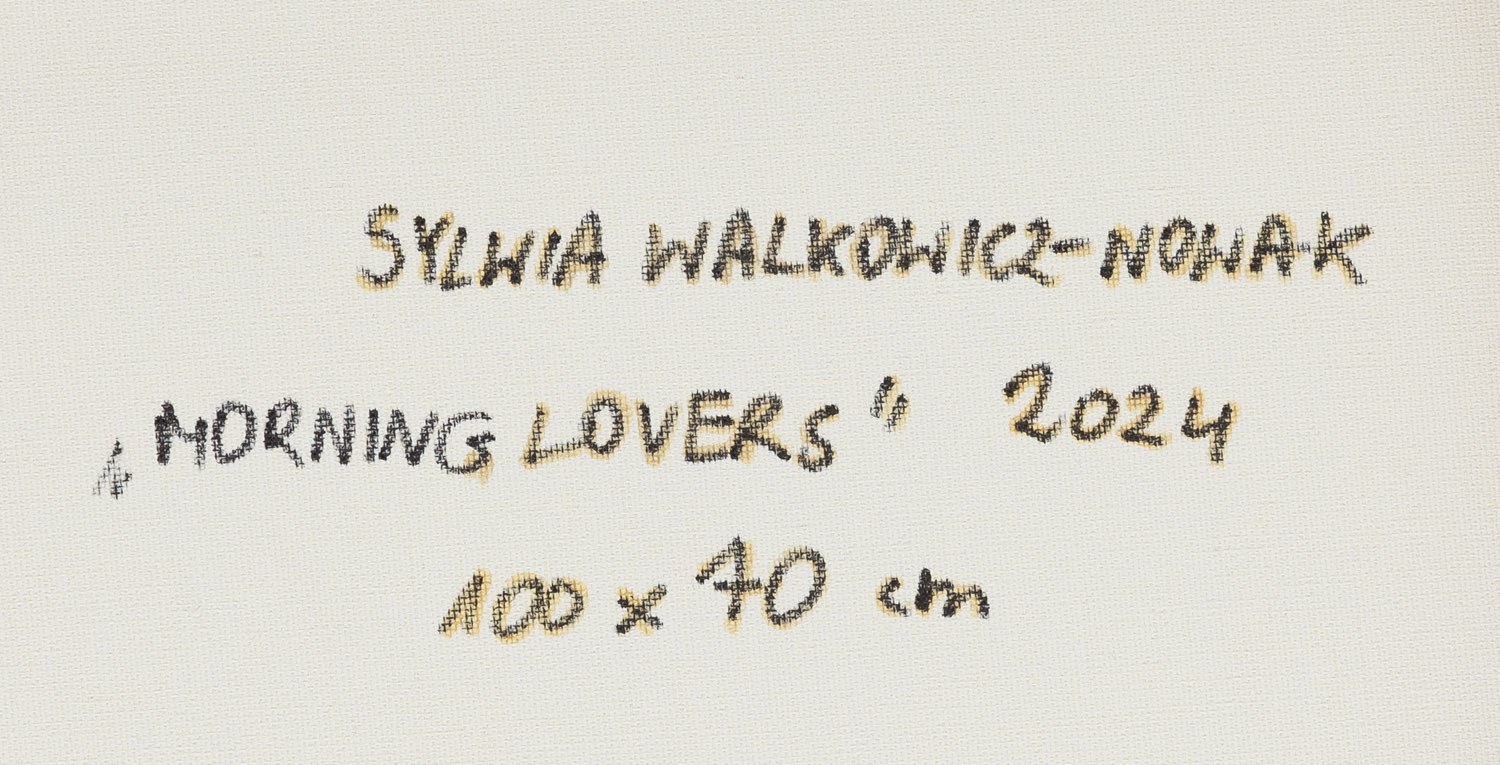 SYLWIA WALKOWICZ-NOWAK
„MORNING LOVERS" 2024
100 x 70 cm